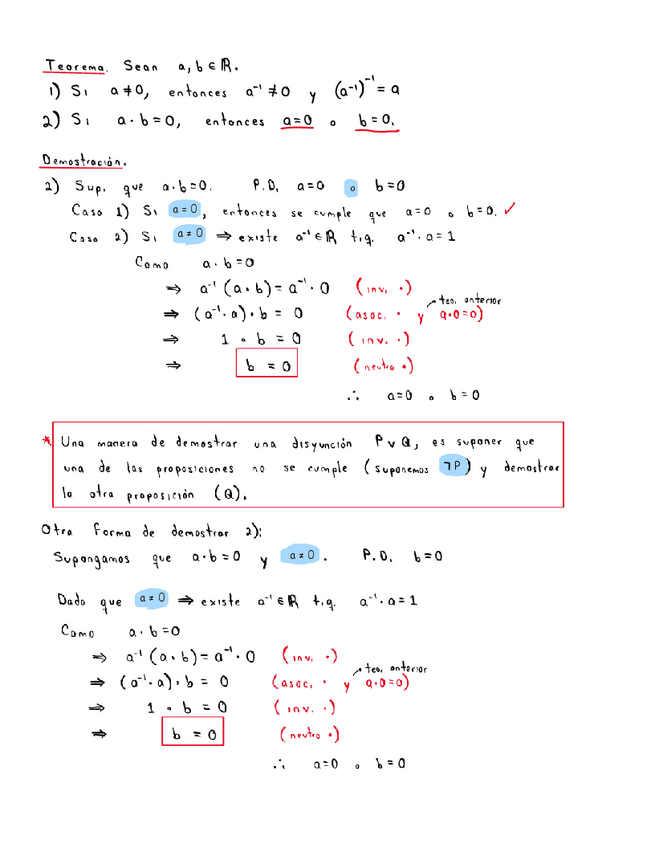 Teorema. Sean a, b ∈ ℝ.
1) Si a ≠ 0, entonces a⁻¹ ≠ 0 y (a⁻¹)⁻¹ = a
2) Si a · b = 0, entonces a = 0 o b = 0.
Demostración.
2) Sup. que a · b = 0. P.D. a = 0 o b = 0
Caso 1) Si a = 0, entonces se cumple que a = 0 o b = 0. ✓
Caso 2) Si a ≠ 0 ⇒ existe a⁻¹ ∈ ℝ t.q. a⁻¹ · a = 1
Como a · b = 0
⇒ a⁻¹ (a · b) = a⁻¹ · 0 (inv. ·)
teo. anterior
⇒ (a⁻¹ · a) · b = 0 (asoc. · y a·0=0)
⇒ 1 · b = 0 (inv. ·)
⇒ b = 0 (neutro ·)
∴ a = 0 o b = 0
* Una manera de demostrar una disyunción P ∨ Q, es suponer que
una de las proposiciones no se cumple (suponemos ¬P) y demostrar
la otra proposición (Q).
Otra forma de demostrar 2):
Supongamos que a · b = 0 y a ≠ 0. P.D. b = 0
Dado que a ≠ 0 ⇒ existe a⁻¹ ∈ ℝ t.q. a⁻¹ · a = 1
Como a · b = 0
⇒ a⁻¹ (a · b) = a⁻¹ · 0 (inv. ·)
teo. anterior
⇒ (a⁻¹ · a) · b = 0 (asoc. · y a·0=0)
⇒ 1 · b = 0 (inv. ·)
⇒ b = 0 (neutro ·)
∴ a = 0 o b = 0